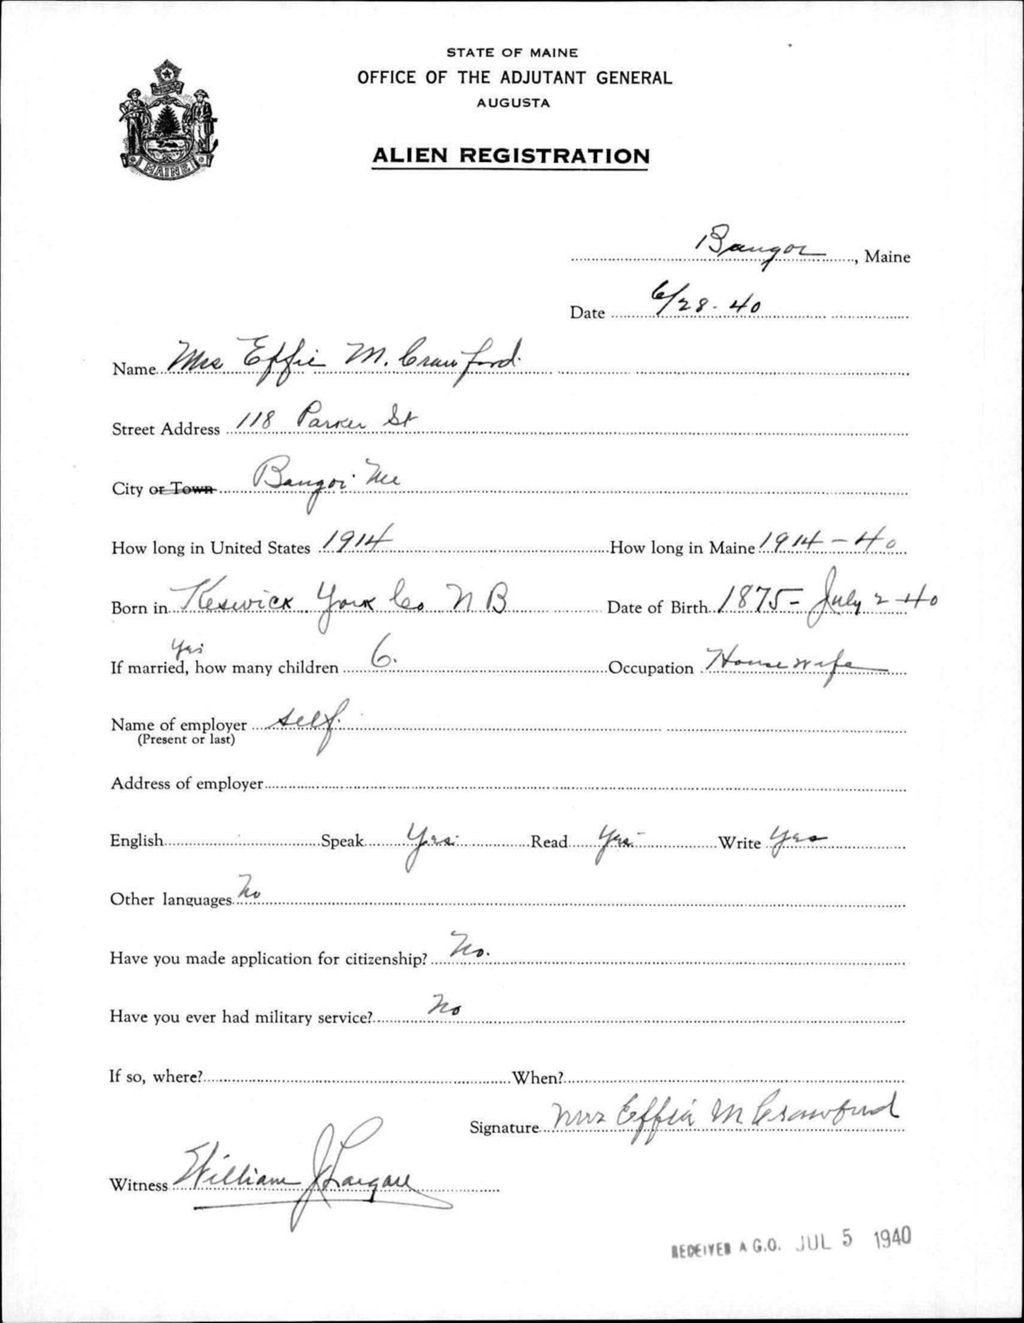 STATE OF MAINE
OFFICE OF THE ADJUTANT GENERAL
AUGUSTA
ALIEN REGISTRATION
MAINE
Bangor, Maine
Date 6/28-40
Name Mrs Effie M. Crawford
Street Address 118 Parker St
City or Town Bangor Me
How long in United States 1914 How long in Maine 1914-40
Born in Keswick York Co N B Date of Birth 1875- July 2-40
yes
If married, how many children 6. Occupation Housewife
Name of employer self.
(Present or last)
Address of employer
English Speak Yes. Read Yes Write Yes
Other languages No
Have you made application for citizenship? No.
Have you ever had military service? No
If so, where? When?
Signature Mrs Effie M Crawford
Witness William J
RECEIVED A G.O. JUL 5 1940